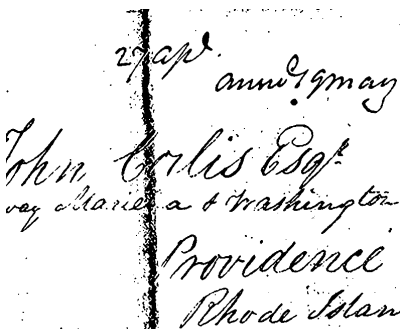 27 apl.
annd 19 may
John Corlis Esqr
way Marie a & Washington
Providence
Rhode Islan